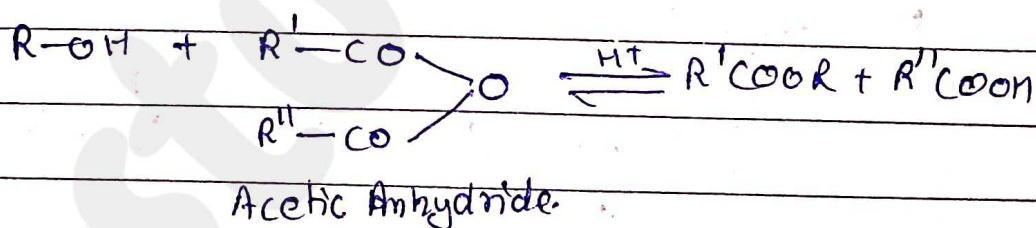 R-OH + R'-CO \ O ⇌ H+ R'COOR + R''COOH
R''-CO /
Acetic Anhydride.